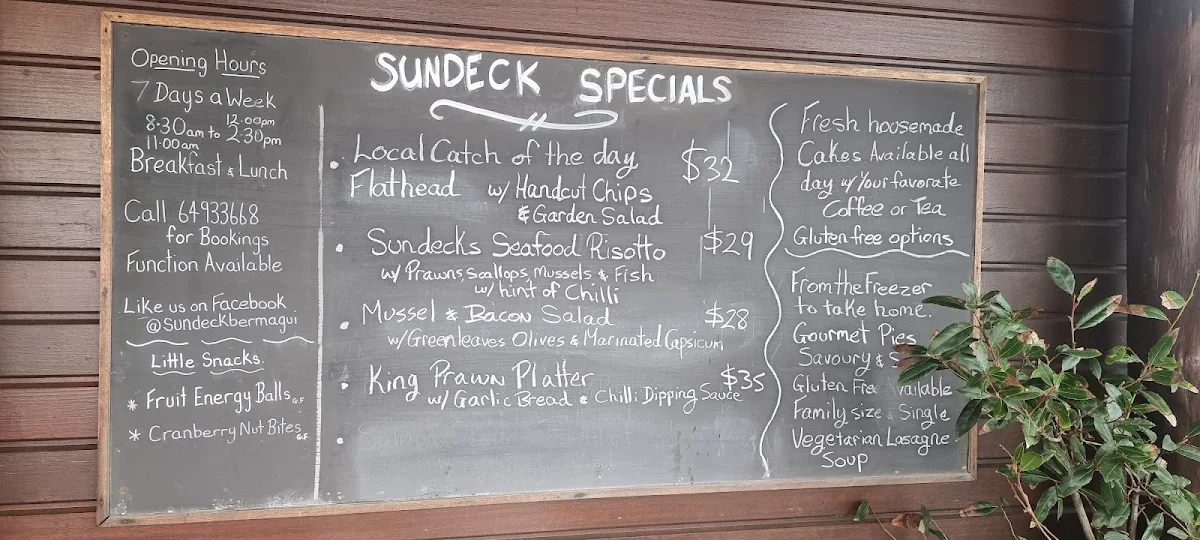 Opening Hours
7 Days a Week
8.30am to 12.00pm
11.00am 2.30pm
Breakfast & Lunch
Call 64933668
for Bookings
Function Available
Like us on Facebook
@Sundeckbermagui
Little Snacks.
* Fruit Energy Balls G.F
* Cranberry Nut Bites G.F
SUNDECK SPECIALS
• Local Catch of the day $32
Flathead w/ Handcut Chips
& Garden Salad
• Sundecks Seafood Risotto $29
w/ Prawns, Scallops, Mussels & Fish
w/ hint of Chilli
• Mussel & Bacon Salad $28
w/ Greenleaves Olives & Marinated Capsicum
• King Prawn Platter $35
w/ Garlic Bread & Chilli Dipping Sauce
•
Fresh housemade
Cakes Available all
day w/ Your favorate
Coffee or Tea
Gluten free options
From the Freezer
to take home.
Gourmet Pies
Savoury &
Gluten
Family size Single
Vegetarian Lasagne
Soup